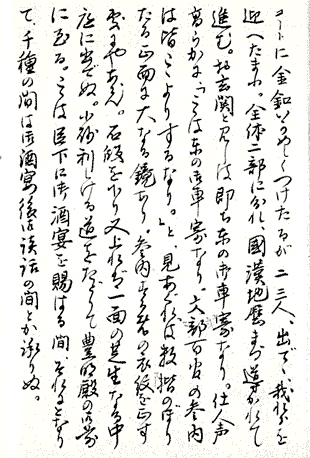 コートに金釦いかめしくつけたるが二三人、出でゝ我れらを
迎へたまふ。全体二部に分れ、國漢地歴まづ導かれて
進む。玄関と見しは即ち東の御車寄なり。仕人声
高らかに「こは東の御車寄なり。文部百官の参内
は皆こゝよりするなり。」と、見あぐれば数階のぼり
たる正面に大なる鏡あり、参内する者の衣紋を正す
にやあらん。石段を下り又上れば一面の芝生なる中
庭に出でぬ。小砂利しける道をたどりて豊明殿の
に至る。こゝは臣下に御酒宴を賜はる間、それととなり
て、千種の間は御酒宴後御談話の間とか承りぬ。